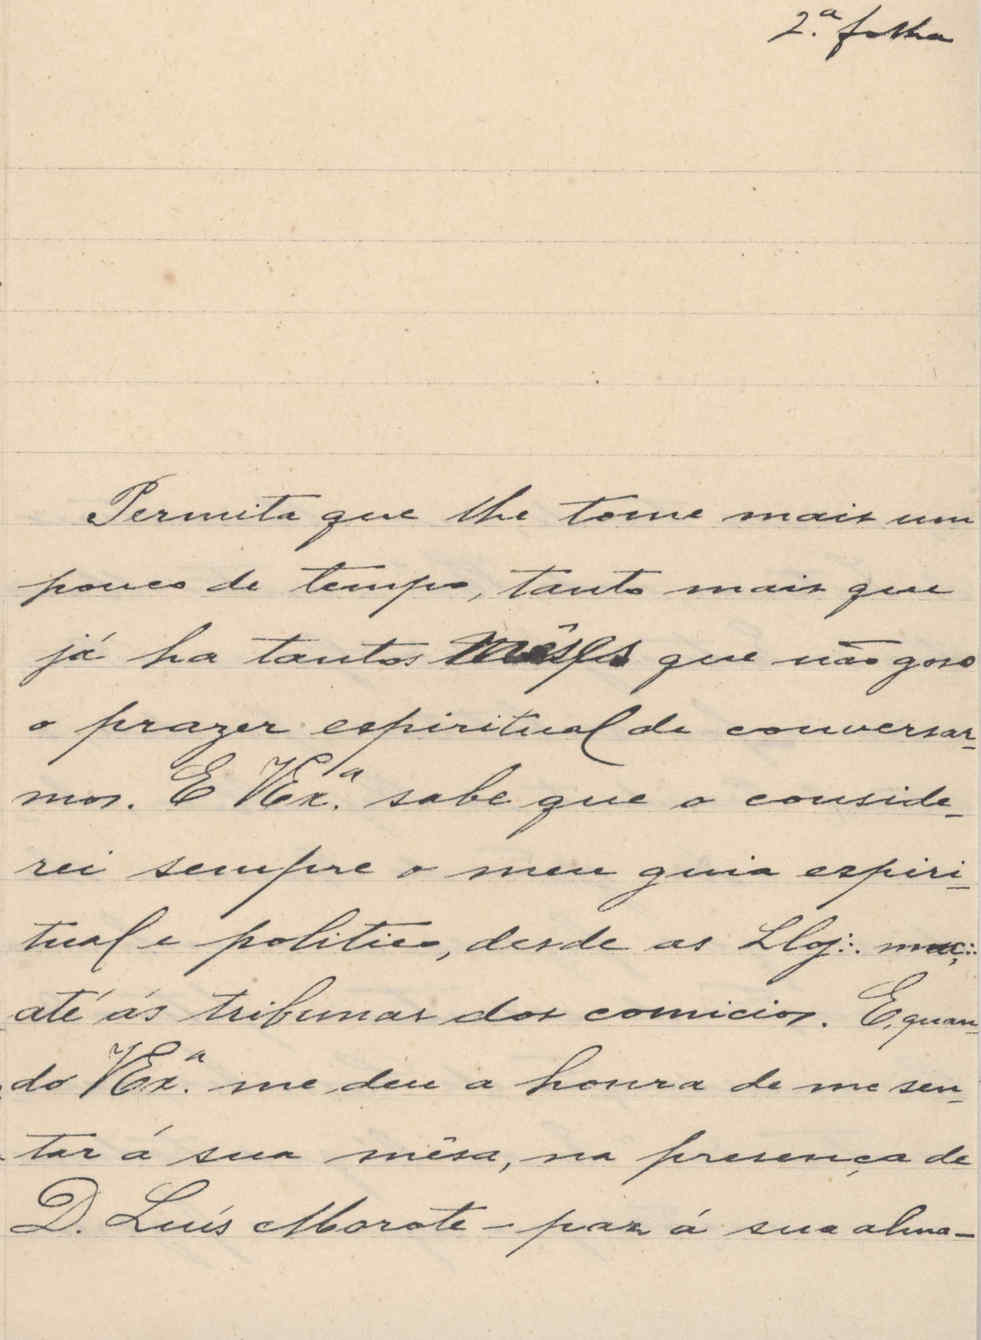 2.ª folha
Permita que lhe tome mais um
pouco de tempo, tanto mais que
já ha tantos mêses que não goso
o prazer espiritual de conversar-
mos. E VEx.ª sabe que o conside-
rei sempre o meu guia espiri-
tual e politico, desde as Lloj∴ maç∴
até ás tribunas dos comicios. E, quan-
do VEx.ª me deu a honra de me sen-
tar á sua mêsa, na presença de
D. Luís Morote – paz á sua alma –